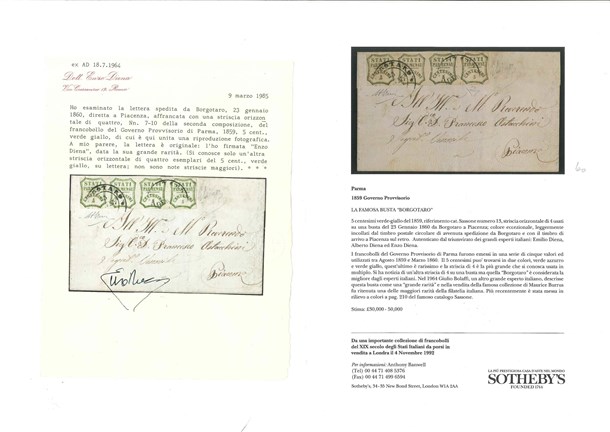 ex AD 18.7.1964
Dott. Enzo Diena
9 marzo 1985
Ho esaminato la lettera spedita da Borgotaro, 23 gennaio
1860, diretta a Piacenza, affrancata con una striscia orizzon
tale di quattro, No. 7-10 della seconda composizione, del
francobollo del Governo Provvisorio di Parma, 1859, 5 cent.,
verde giallo, di cui è qui unita una riproduzione fotografica.
A mio parere, la lettera è originale: l'ho firmata "Enzo
Diena", data la sua grande rarità. (Si conosce solo un'altra
striscia orizzontale di quattro esemplari del 5 cent., verde
giallo, su lettera; non sono note striscie maggiori). * * *
STATI STATI STATI STATI
Parma
1859 Governo Provvisorio
LA FAMOSA BUSTA "BORGOTARO"
5 centesimi verde giallo del 1859, riferimento cat. Sassone numero 13, striscia orizzontale di 4 usati
su una busta del 23 Gennaio 1860 da Borgotaro a Piacenza; colore eccezionale, leggermente
incollati dal timbro postale circolare di avvenuta spedizione da Borgotaro e con il timbro di
arrivo a Piacenza sul retro. Autenticato dai triumvirato dei grandi esperti italiani: Emilio Diena,
Alberto Diena ed Enzo Diena.
I francobolli del Governo Provvisorio di Parma furono emessi in una serie di cinque valori ed
utilizzati tra Agosto 1859 e Marzo 1860. Il 5 centesimi puo' trovarsi in due colori, verde azzurro
e verde giallo, quest'ultimo è rarissimo e la striscia di 4 è la più grande che si conosca usata in
multiplo. Si ha notizia di un'altra striscia di 4 su una busta ma quella "Borgotaro" è considerata la
migliore dagli esperti italiani. Nel 1964 Giulio Bolaffi, un altro grande esperto italiano, descrisse
questa busta come una "grande rarità" e nella vendita della famosa collezione di Maurice Burrus
fu ritenuta una delle maggiori rarità della filatelia italiana. Più recentemente è stata messa in
rilievo a colori a pag. 210 del famoso catalogo Sassone.
Stima: £30,000 - 50,000
Da una importante collezione di francobolli
del XIX secolo degli Stati Italiani da porsi in
vendita a Londra il 4 Novembre 1992
Per informazioni: Anthony Banwell
(Tel) 00 44 71 408 5376
(Fax) 00 44 71 499 6594
Sotheby's, 34-35 New Bond Street, London W1A 2AA
LA PIÙ PRESTIGIOSA CASA D'ASTE NEL MONDO
SOTHEBY'S
FOUNDED 1744